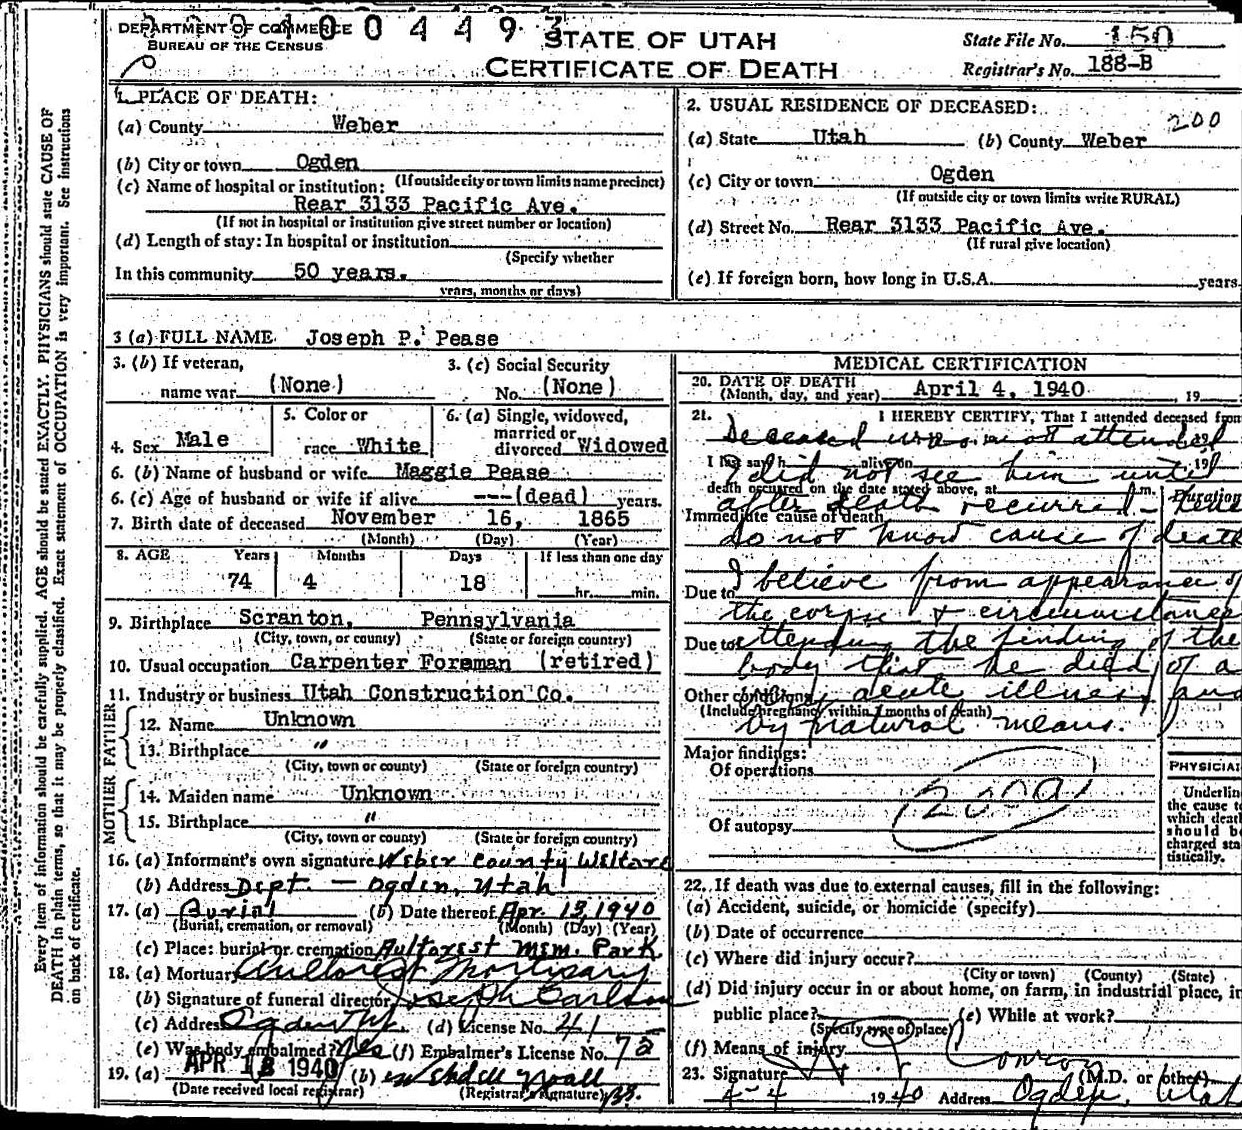 DEPARTMENT OF COMMERCE
BUREAU OF THE CENSUS
0 0 4 4 9 3
STATE OF UTAH
CERTIFICATE OF DEATH
State File No. 150
Registrar's No. 188-B
Every item of information should be carefully supplied. AGE should be stated EXACTLY. PHYSICIANS should state CAUSE OF
DEATH in plain terms, so that it may be properly classified. Exact statement of OCCUPATION is very important. See instructions
on back of certificate.
1. PLACE OF DEATH:
(a) County Weber
(b) City or town Ogden
(If outside city or town limits name precinct)
(c) Name of hospital or institution:
Rear 3133 Pacific Ave.
(If not in hospital or institution give street number or location)
(d) Length of stay: In hospital or institution
(Specify whether
In this community 50 years.
years, months or days)
2. USUAL RESIDENCE OF DECEASED:
200
(a) State Utah (b) County Weber
(c) City or town Ogden
(If outside city or town limits write RURAL)
(d) Street No. Rear 3133 Pacific Ave.
(If rural give location)
(e) If foreign born, how long in U.S.A. years.
3 (a) FULL NAME Joseph P. Pease
3. (b) If veteran,
name war (None)
3. (c) Social Security
No. (None)
4. Sex Male
5. Color or
race White
6. (a) Single, widowed,
married or
divorced Widowed
6. (b) Name of husband or wife Maggie Pease
6. (c) Age of husband or wife if alive ---(dead) years.
7. Birth date of deceased November 16, 1865
(Month) (Day) (Year)
8. AGE Years Months Days If less than one day
74 4 18 hr. min.
9. Birthplace Scranton, Pennsylvania
(City, town, or county) (State or foreign country)
10. Usual occupation Carpenter Foreman (retired)
11. Industry or business Utah Construction Co.
FATHER
12. Name Unknown
13. Birthplace "
(City, town or county) (State or foreign country)
MOTHER
14. Maiden name Unknown
15. Birthplace "
(City, town or county) (State or foreign country)
16. (a) Informant's own signature Weber County Welfare
(b) Address Dept. - Ogden, Utah
17. (a) Burial (b) Date thereof Apr. 13, 1940
(Burial, cremation, or removal) (Month) (Day) (Year)
(c) Place: burial or cremation Aultorest Mem. Park
18. (a) Mortuary Aultorest Mortuary
(b) Signature of funeral director Joseph Carlson
(c) Address Ogden Ut. (d) License No. 41
(e) Was body embalmed? Yes (f) Embalmer's License No. 72
19. (a) APR 13 1940 (b)
(Date received local registrar) (Registrar's signature)
MEDICAL CERTIFICATION
20. DATE OF DEATH
(Month, day, and year) April 4, 1940, 19
21. I HEREBY CERTIFY, That I attended deceased from
Deceased was not attended
I last saw h alive on , 19
I did not see him until
death occurred on the date stated above, at m. Duration
after death occurred - hence
Immediate cause of death
do not know cause of death
I believe from appearance of
Due to
the corpse & circumstances
Due to attending the finding of the
body that he died of a
Other conditions acute illness, and
(Include pregnancy within 3 months of death)
by natural means.
Major findings:
Of operations
200a
Of autopsy
PHYSICIAN
Underline
the cause to
which death
should be
charged sta-
tistically.
22. If death was due to external causes, fill in the following:
(a) Accident, suicide, or homicide (specify)
(b) Date of occurrence
(c) Where did injury occur?
(City or town) (County) (State)
(d) Did injury occur in or about home, on farm, in industrial place, in
public place? (e) While at work?
(Specify type of place)
(f) Means of injury
23. Signature Conroy (M.D. or other)
4-4 1940 Address Ogden, Utah